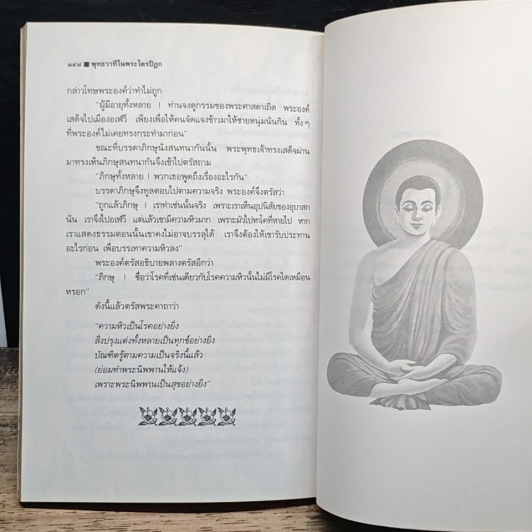 ๑๔๘ ■ พุทธวาทีในพระไตรปิฎก
กล่าวโทษพระองค์ว่าทำไม่ถูก
"ผู้มีอายุทั้งหลาย ! ท่านจงดูกรรมของพระศาสดาเถิด พระองค์
เสด็จไปเมืองอเฬวี เพียงเพื่อให้คนจัดแจงข้าวมาให้ชายหนุ่มนั่นกิน ทั้งๆ
ที่พระองค์ไม่เคยทรงกระทำมาก่อน"
ขณะที่บรรดาภิกษุนั่งสนทนากันนั้น พระพุทธเจ้าทรงเสด็จผ่าน
มาทรงเห็นภิกษุสนทนากันจึงเข้าไปตรัสถาม
"ภิกษุทั้งหลาย ! พวกเธอพูดถึงเรื่องอะไรกัน"
บรรดาภิกษุจึงทูลตอบไปตามความจริง พระองค์จึงตรัสว่า
"ถูกแล้วภิกษุ ! เราทำเช่นนั้นจริง เพราะเราเห็นอุปนิสัยของอุบาสก
นั้น เราจึงไปอเฬวี แต่แล้วเขามีความหิวมาก เพราะมัวไปหาโคที่หายไป หาก
เราแสดงธรรมตอนนั้นเขาคงไม่อาจบรรลุได้ เราจึงต้องให้เขารับประทาน
อะไรก่อน เพื่อบรรเทาความหิวลง"
พระองค์ตรัสอธิบายพลางตรัสอีกว่า
"ภิกษุ ! ชื่อว่าโรคที่เช่นเดียวกับโรคความหิวนั้นไม่มีโรคใดเหมือน
หรอก"
ดังนี้แล้วตรัสพระคาถาว่า
"ความหิวเป็นโรคอย่างยิ่ง
สิ่งปรุงแต่งทั้งหลายเป็นทุกข์อย่างยิ่ง
บัณฑิตรู้ตามความเป็นจริงนี้แล้ว
(ย่อมทำพระนิพพานให้แจ้ง)
เพราะพระนิพพานเป็นสุขอย่างยิ่ง"